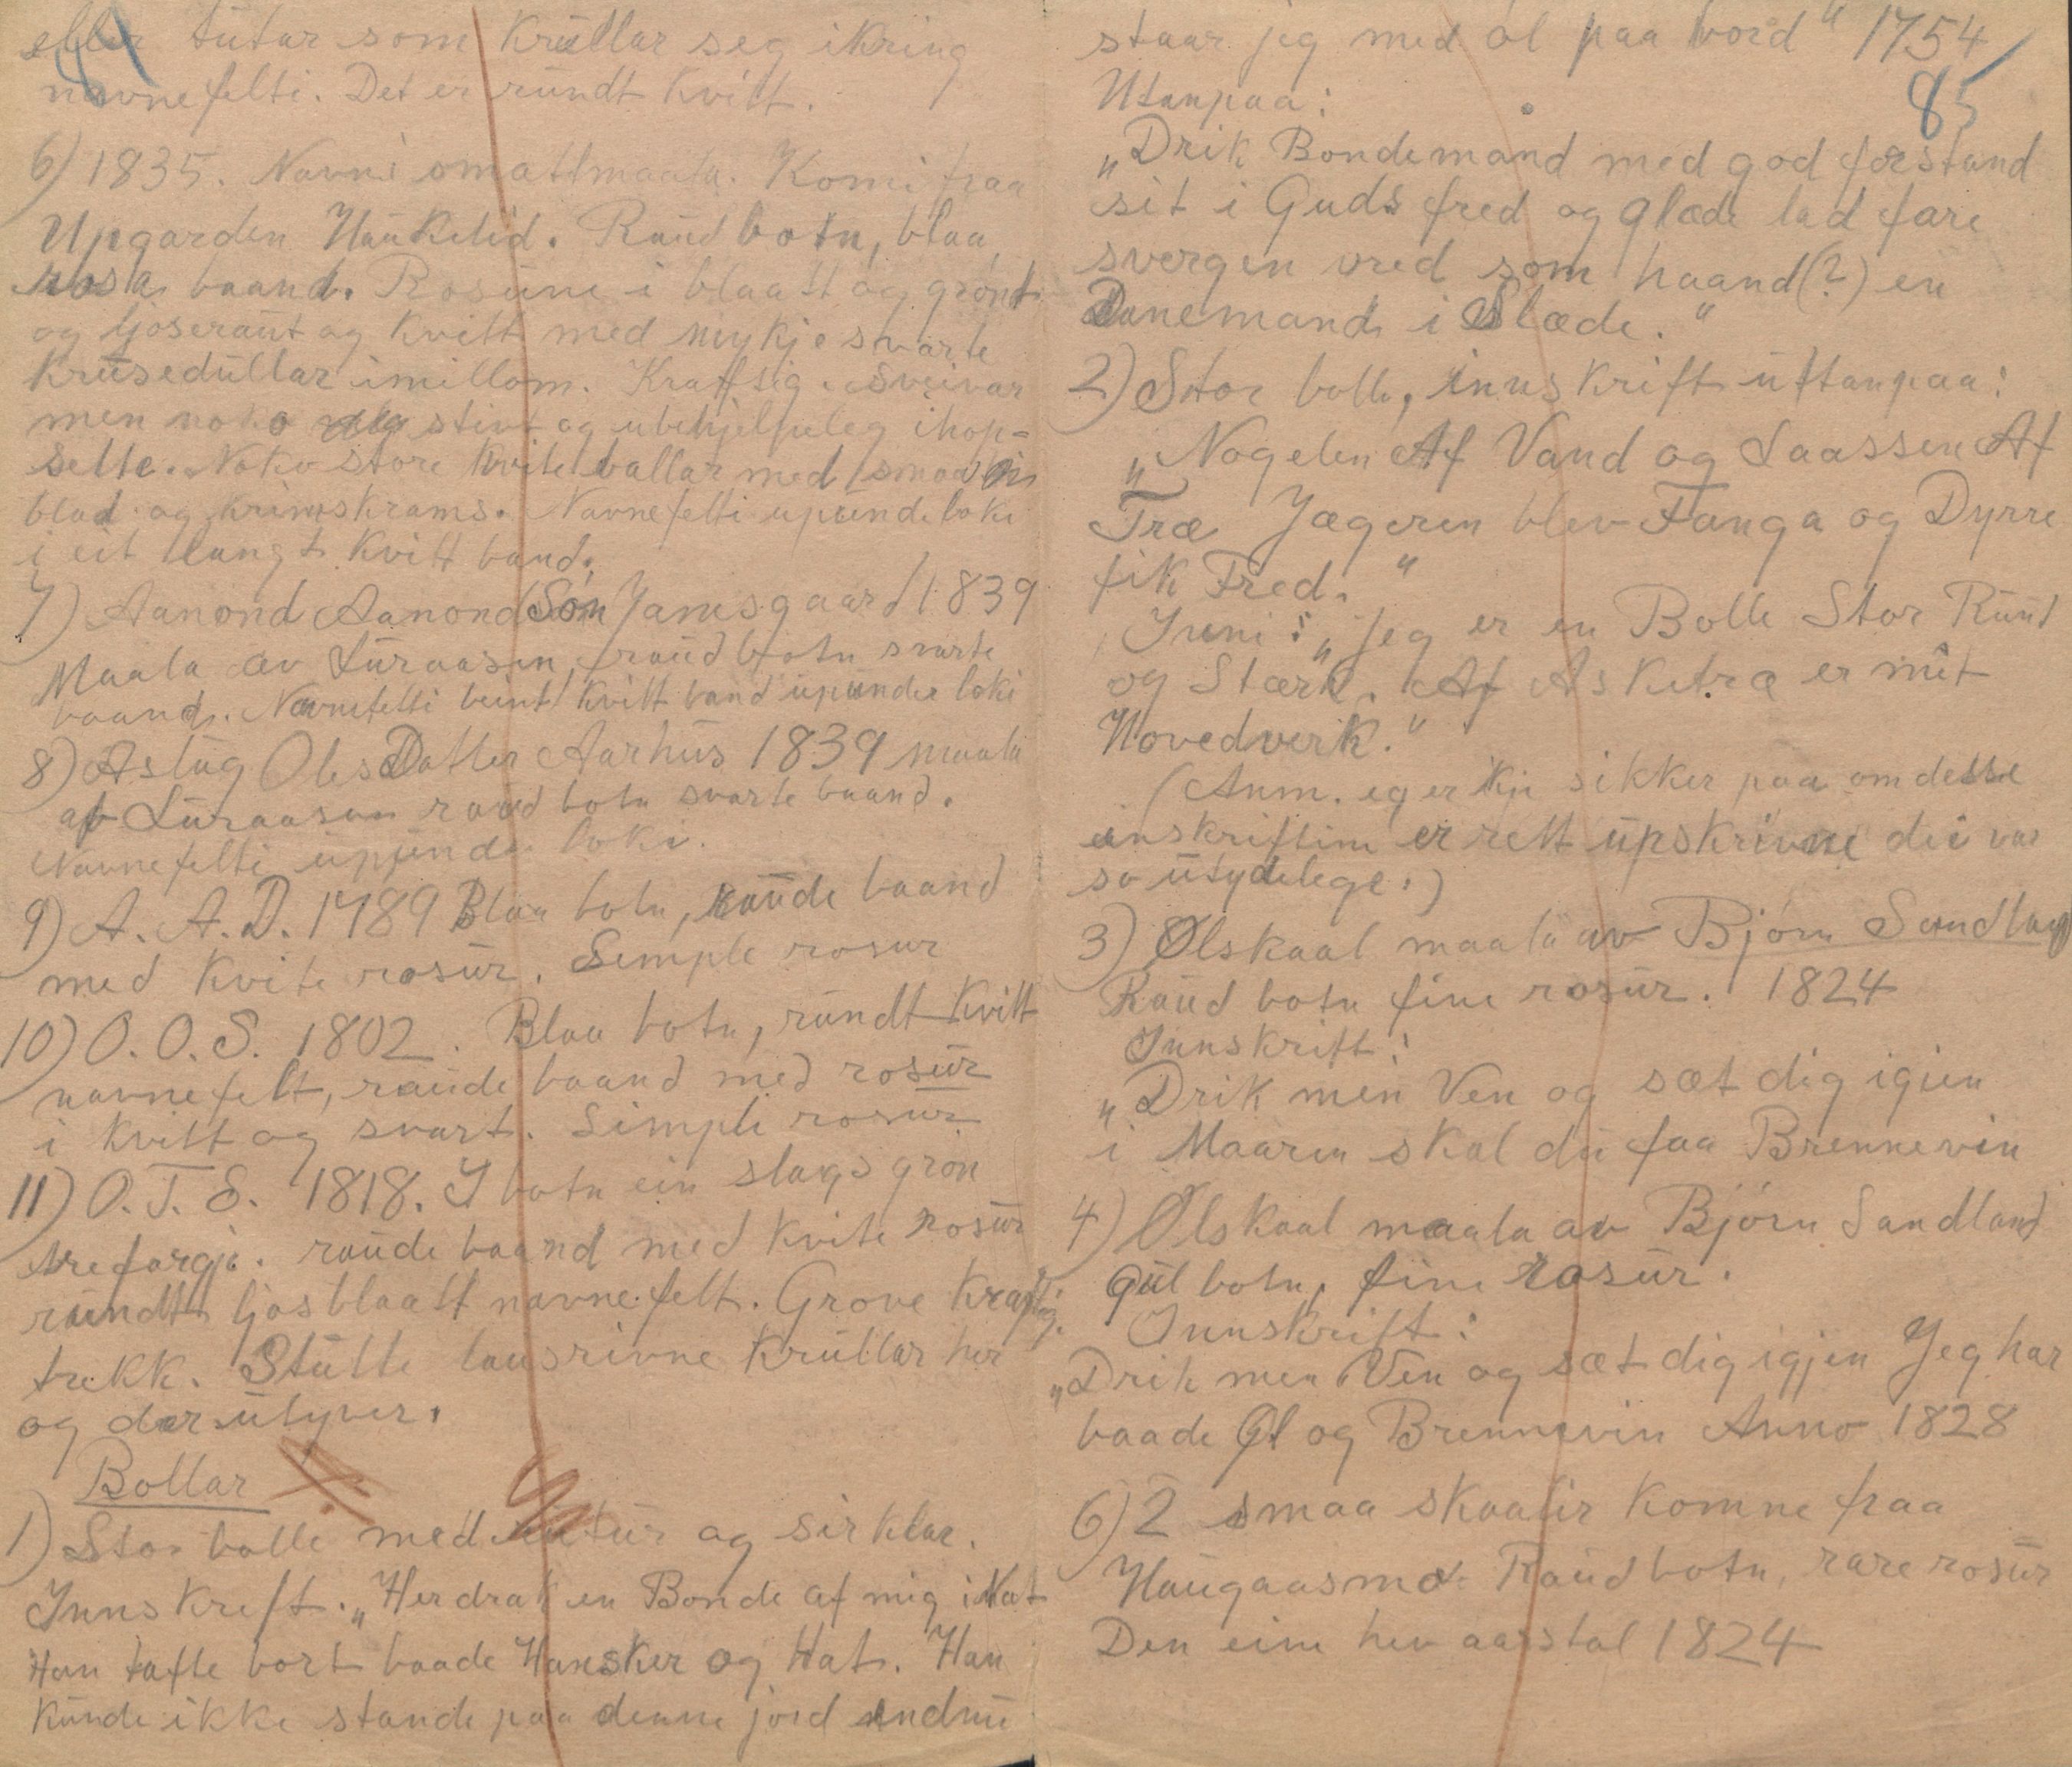 eller tutar som krullar seg ikring
navnefelti. Det er rundt kvitt.
6) 1835. Navni omattmaala. Komi fraa
Upgarden Haukelid. Raud botn, blaa,
rosa baand. Rosune i blaatt og grønt
og ljoseraut og kvitt med mykje svarte
krusedullar imillom. Kraftsig. sveivar
men noko stivt og ubehjelpeleg ihop-
sette. Noko store kvite ballar med smaa
blad og krimskrams. Navnefelti upunde loki
i eit langt kvitt band.
7) Aanond Aanond Søn Jamsgaard 1839
Maala av Luraasen, raud botn svarte
baand. Navnefelti beint kvitt band upunder loki
8) Aslug OlesDatter Aarhus 1839 maala
af Luraasen raud botn svarte baand.
Navnefelti upunde loki.
9) A. A. D. 1789 Blaa botn, raude baand
med kvite rosur. Simple rosur
10) O. O. S. 1802. Blaa botn, rundt kvitt
navnefelt, raude baand med rosur
i kvitt og svart. Simple rosur
11) O. T. S. 1818. I botn ein slags grøn
trefargje. raude baand med kvite rosur
rundt ljosblaatt navnefelt. Grove kraftig.
trekk. Stutte lausrivne krullar her
og der utyver.
Bollar
1) Stor bolle med rutur og sirklar.
Innskrift. „Her drak en Bonde af mig i Nat
Han tafte bort baade Hansker og Hat. Han
kunde ikke stande paa denne jord endnu
84
staar jeg med øl paa bord" 1754
85
Utanpaa:
„Drik Bondemand med god forstand
sit i Guds fred og glæde lad fare
svergen vred som haand(?) en
Danemand i Slæde."
2) Stor bolle, innskrift uttanpaa:
„Nøgelen Af Vand og Laassen Af
Træ Jægeren blev Fanga og Dyrre
fik Fred."
Inni: „Jeg er en Bolle Stor Rund
og Stærk. Af Asketræ er mit
Hovedverk."
(Anm. eg er kje sikker paa om desse
innskriftine er rett upskrivne dei var
so utydelege.)
3) Ølskaal maala av Bjørn Sandland
Raud botn fine rosur. 1824
Innskrift:
„Drik min Ven og sæt dig igien
i Maaren skal du faa Brennevin
4) Ølskaal maala av Bjørn Sandland
Gul botn, fine rosur.
Innskrift:
„Drik men Ven og sæt dig igjen Jeg har
baade Øl og Brennevin Anno 1828
6) 2 smaa skaalir komne fraa
Haugaasmo. Raud botn, rare rosur
Den eine hev aarstal 1824